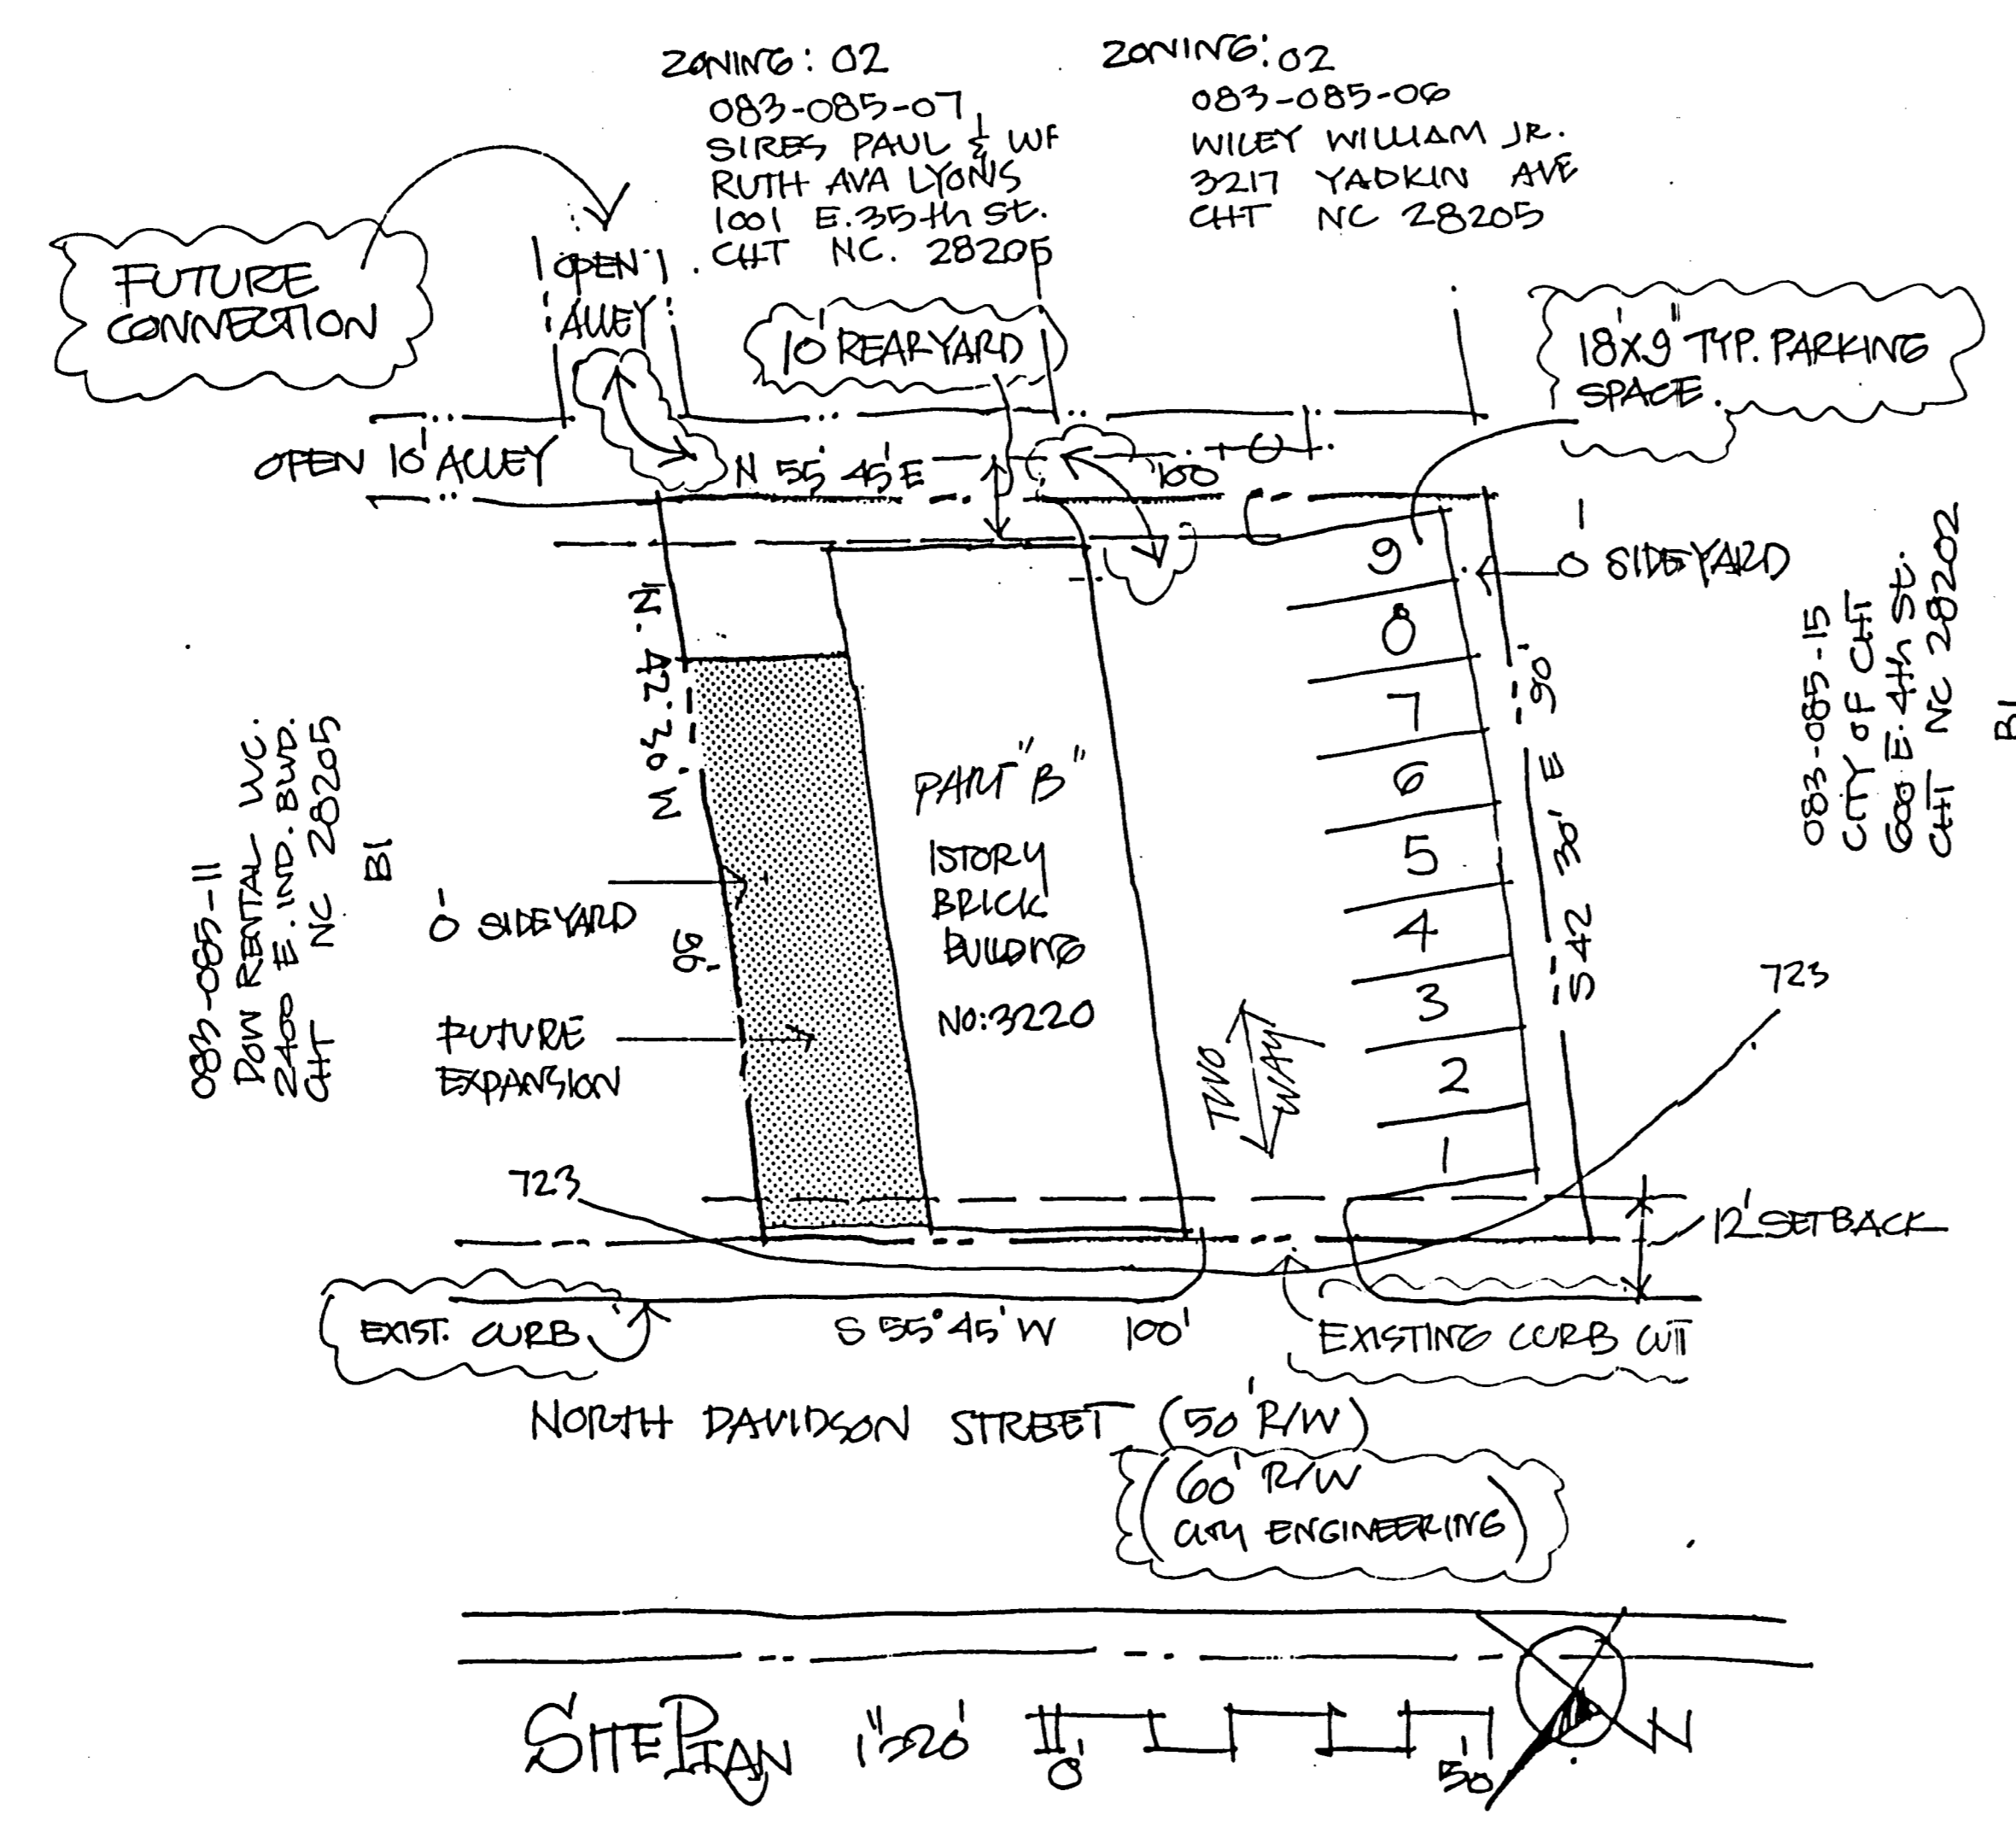 ZONING: 02
083-085-07
SIRES PAUL & WF
RUTH AVA LYONS
1001 E. 35th St.
CHT NC. 28205
ZONING: 02
083-085-06
WILEY WILLIAM JR.
3217 YADKIN AVE
CHT NC 28205
FUTURE
CONNECTION
OPEN
ALLEY
10' REARYARD
18'X9' TYP. PARKING
SPACE.
OPEN 10' ALLEY
N 55° 45' E
100'
0' SIDEYARD
9
8
7
6
5
4
3
2
1
N. 42. 30. W
90'
S 42 30' E
083-085-15
CITY OF CHT
600 E. 4th St.
CHT NC 28202
B1
083-085-11
DOW RENTAL INC.
2400 E. IND. BLVD.
CHT NC 28205
B1
0' SIDEYARD
FUTURE
EXPANSION
PART "B"
1 STORY
BRICK
BUILDING
NO: 3220
TWO
WAY
723
723
12' SETBACK
EXIST. CURB
S 55° 45' W 100'
EXISTING CURB CUT
NORTH DAVIDSON STREET (50' R/W)
(60' R/W
CITY ENGINEERING)
SITE PLAN 1"=20'
0'
50'
N